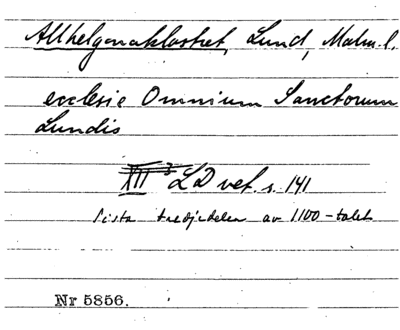 Allhelgonaklostret, Lund, Malm. l.
ecclesie Omnium Sanctorum
Lundis
XII 3 LD vet. s. 141
Sista tredjedelen av 1100-talet
Nr 5856.